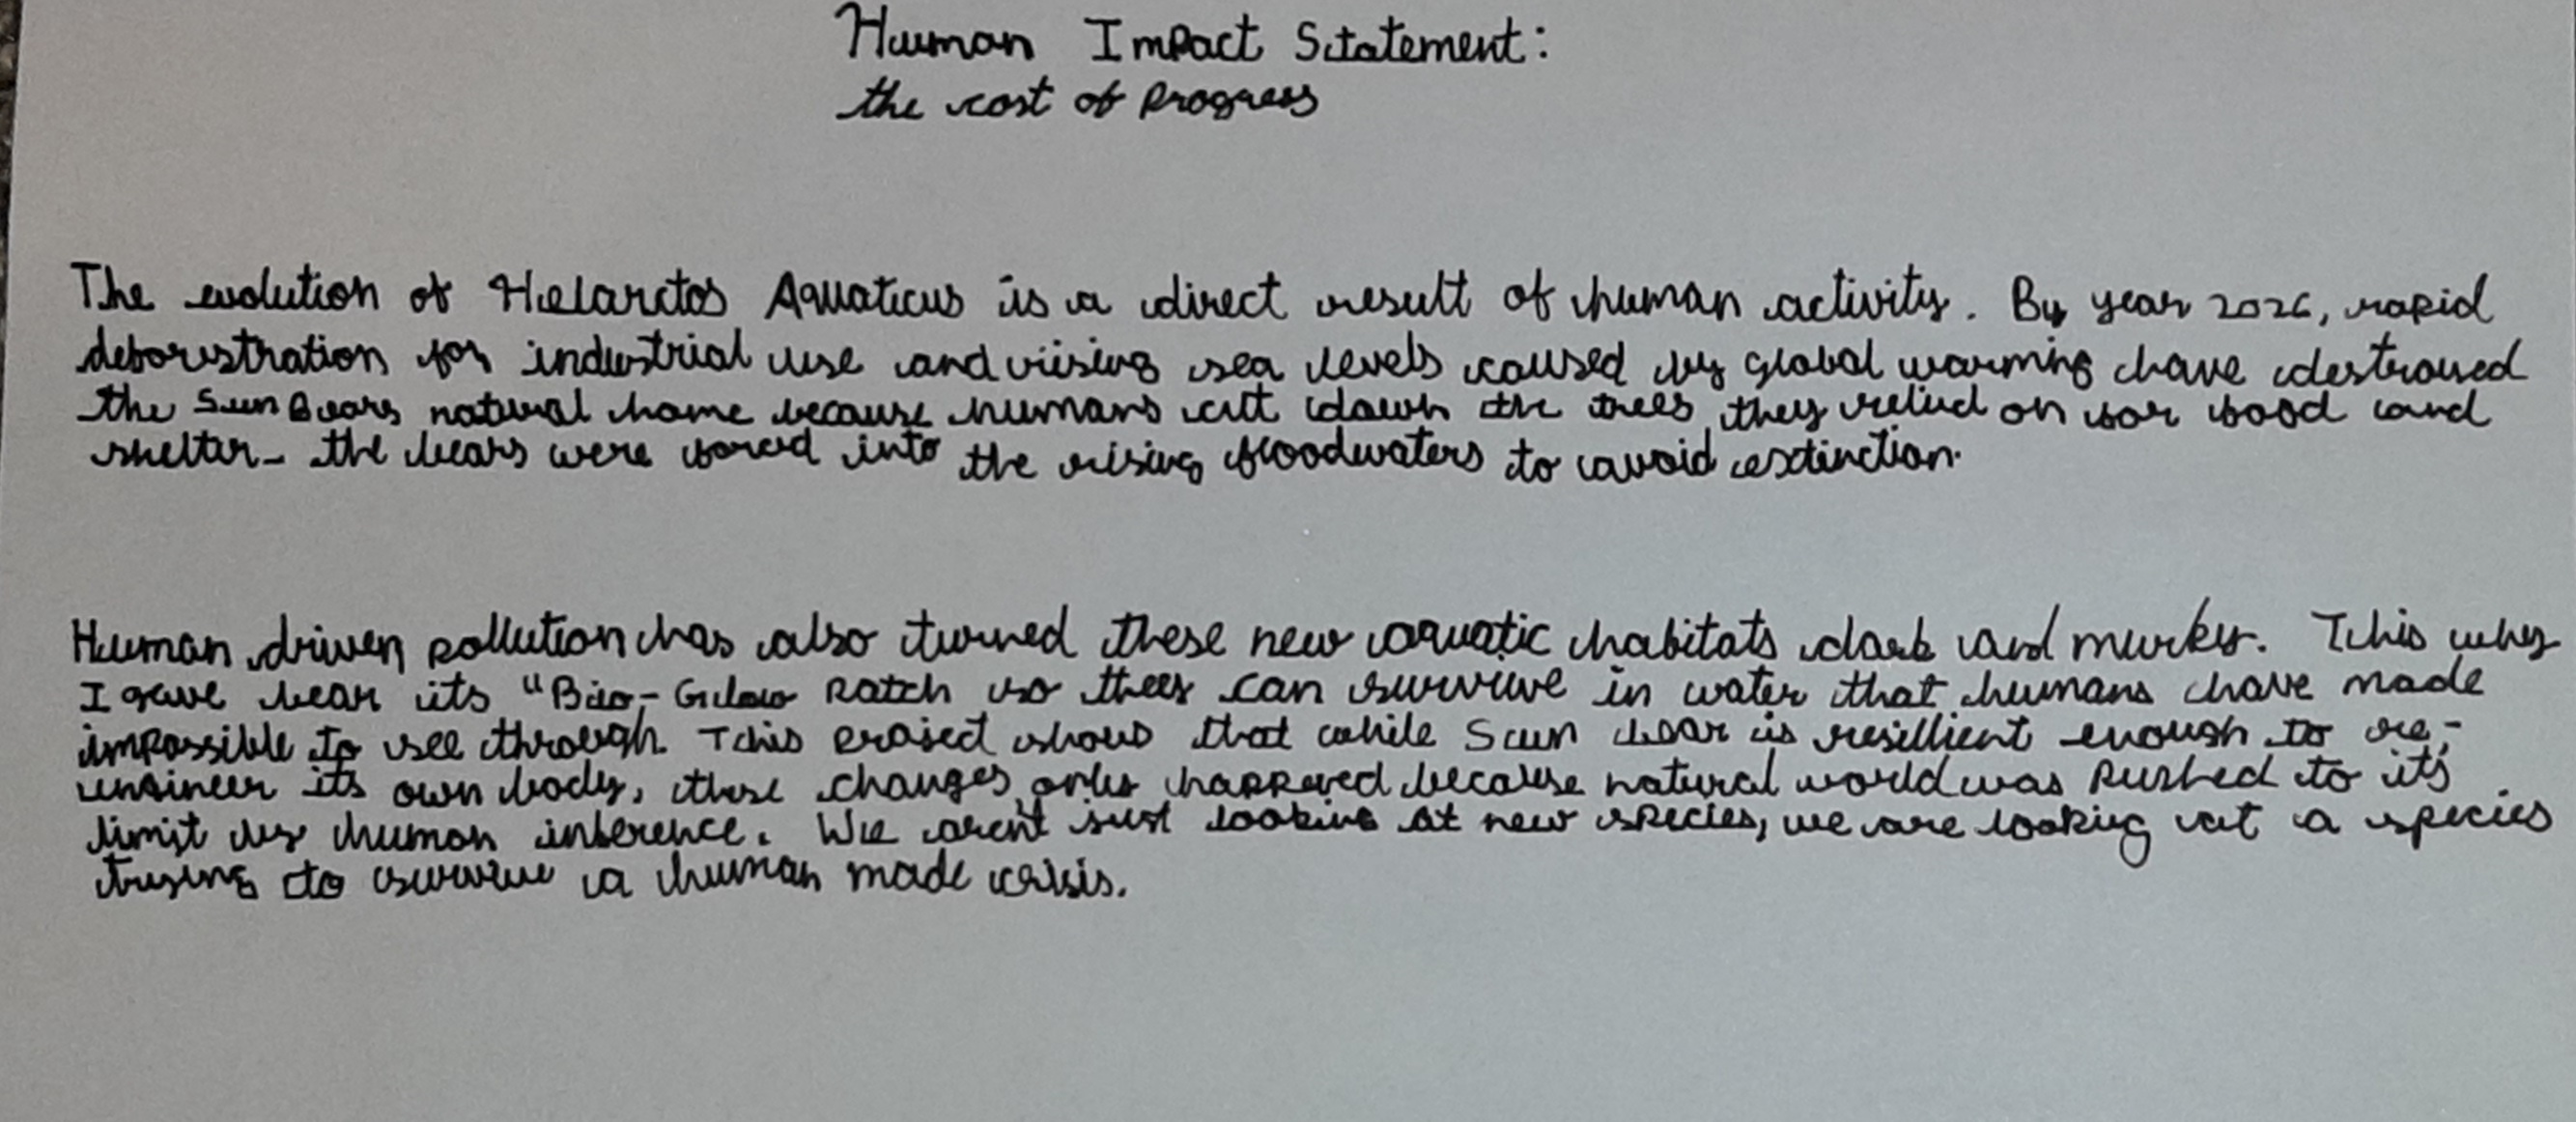 Human Impact Statement:
the cost of Progress
The evolution of Helarctos Aquaticus is a direct result of human activity. By year 2026, rapid
deforestration for industrial use and riising sea levels caused by global warming have destroued
the Sun Bears natural home because humans cut down the trees they relied on for food and
shelter - the bears were forced into the rising floodwaters to avoid extinction.
Human driven pollution has also turned these new aquatic habitats dark and murky. This why
I gave bear its "Bio-Gulow Patch so they can survive in water that humans have made
impossible to see through. This project shows that while Sun bear is resillient enough to re-
engineer its own body, these changes only happened because natural world was pushed to its
limit by human inference. We aren't just looking at new species, we are looking at a species
trying to survive a human made crisis.